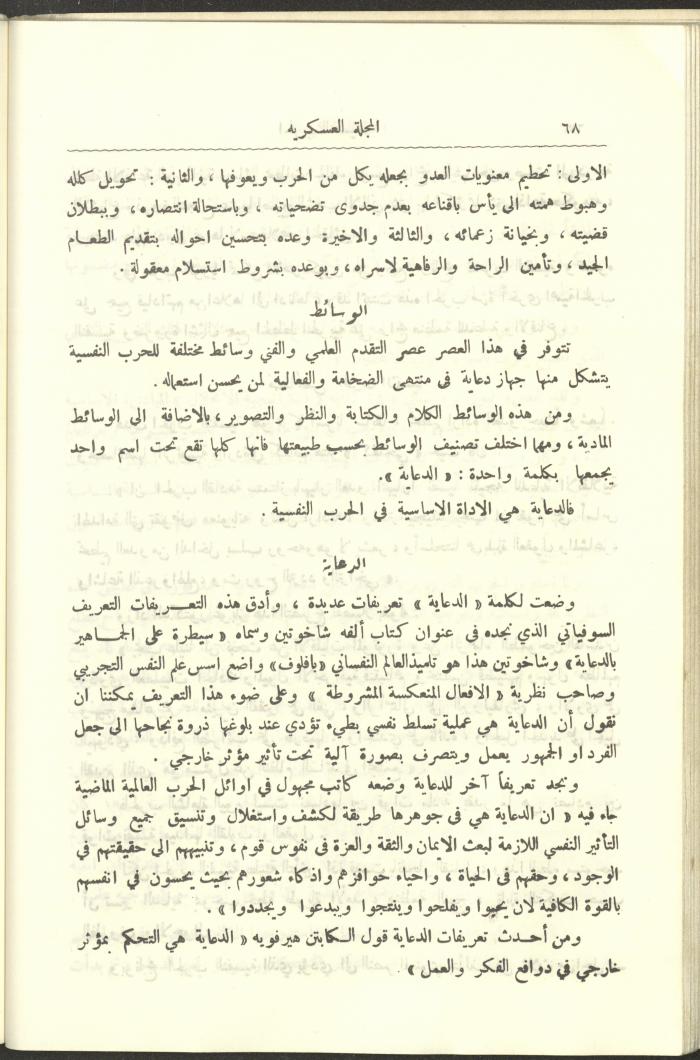 ٦٨ المجلة العسكريه
الاولى : تحطيم معنويات العدو بجعله يكل من الحرب ويعوفها ، والثانية : تحويل كلله
وهبوط همته الى يأس باقناعه بعدم جدوى تضحياته ، وباستحالة انتصاره ، وببطلان
قضيته ، وبخيانة زعمائه ، والثالثة والاخيرة وعده بتحسين احواله بتقديم الطعام
الجيد ، وتأمين الراحة والرفاهية لاسراه ، وبوعده بشروط استسلام معقولة .
الوسائط
تتوفر في هذا العصر عصر التقدم العلمي والفني وسائط مختلفة للحرب النفسية
يتشكل منها جهاز دعاية في منتهى الضخامة والفعالية لمن يحسن استعماله .
ومن هذه الوسائط الكلام والكتابة والنظر والتصوير ، بالاضافة الى الوسائط
المادية ، ومهما اختلف تصنيف الوسائط بحسب طبيعتها فانها كلها تقع تحت اسم واحد
يجمعها بكلمة واحدة : « الدعاية » .
فالدعاية هي الاداة الاساسية في الحرب النفسية .
الدعاية
وضعت لكلمة « الدعاية » تعريفات عديدة ، وأدق هذه التعريفات التعريف
السوفياتي الذي نجده في عنوان كتاب ألفه شاخوتين وسماه « سيطرة على الجماهير
بالدعاية » وشاخوتين هذا هو تلميذ العالم النفساني « بافلوف » واضع اسس علم النفس التجريبي
وصاحب نظرية « الافعال المنعكسة المشروطة » وعلى ضوء هذا التعريف يمكننا ان
نقول أن الدعاية هي عملية تسلط نفسي بطيء تؤدي عند بلوغها ذروة نجاحها الى جعل
الفرد او الجمهور يعمل ويتصرف بصورة آلية تحت تأثير مؤثر خارجي .
ونجد تعريفاً آخر للدعاية وضعه كاتب مجهول في اوائل الحرب العالمية الماضية
جاء فيه « ان الدعاية هي في جوهرها طريقة لكشف واستغلال وتنسيق جميع وسائل
التأثير النفسي اللازمة لبعث الايمان والثقة والعزة في نفوس قوم ، وتنبيههم الى حقيقتهم في
الوجود ، وحقهم في الحياة ، واحياء حوافزهم واذكاء شعورهم بحيث يحسون في انفسهم
بالقوة الكافية لان يحيوا ويفلحوا وينتجوا ويبدعوا ويجددوا » .
ومن أحدث تعريفات الدعاية قول الكابتن هيرفويه « الدعاية هي التحكم بمؤثر
خارجي في دوافع الفكر والعمل » .